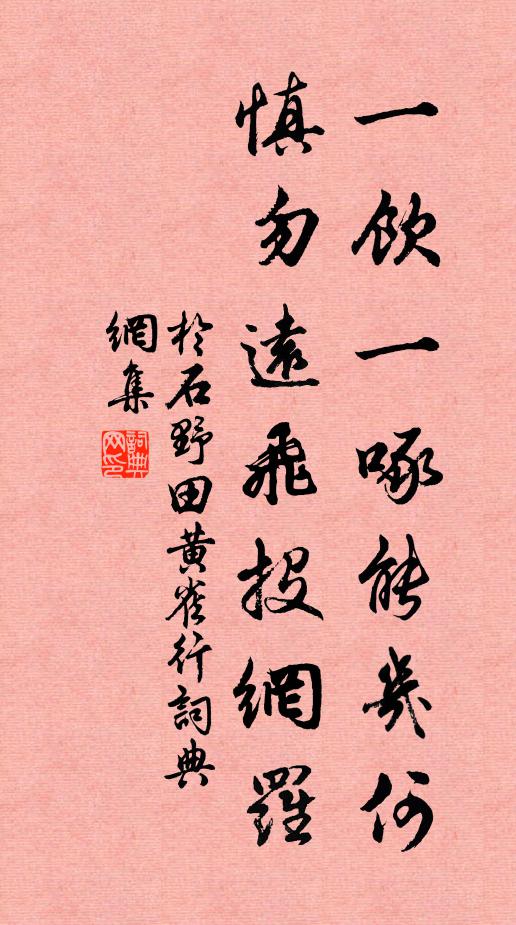 一飲一啄能幾何
慎勿遠飛投網羅
於石野田黃雀行詞典
網集
詞典
网印